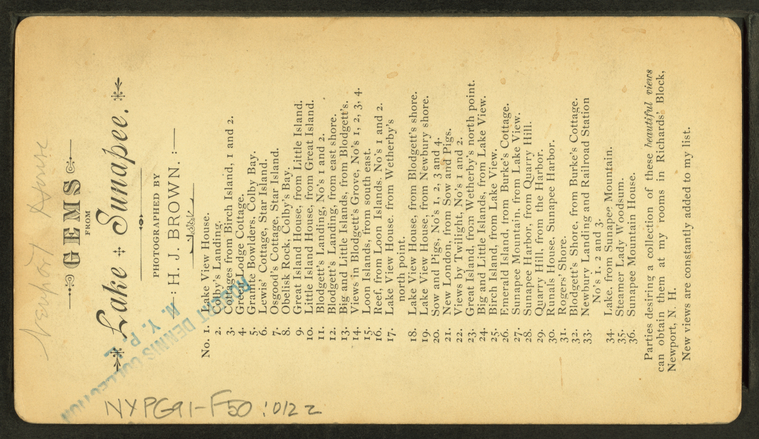 Newport House
GEMS
FROM
Lake Sunapee.
PHOTOGRAPHED BY
—: H. J. BROWN. :—
No. 1. Lake View House.
2. Colby's Landing.
3. Cottages from Birch Island, 1 and 2.
4. Green Lodge Cottage.
5. Granite Bowlders, Colby Bay.
6. Lewis' Cottage, Star Island.
7. Osgood's Cottage, Star Island.
8. Obelisk Rock, Colby's Bay.
9. Great Island House, from Little Island.
10. Little Island House, from Great Island.
11. Blodgett's Landing, No's 1 and 2.
12. Blodgett's Landing, from east shore.
13. Big and Little Islands, from Blodgett's.
14. Views in Blodgett's Grove, No's 1, 2, 3, 4.
15. Loon Islands, from south east.
16. Reef from Loon Islands, No's 1 and 2.
17. Lake View House, from Wetherby's
north point.
18. Lake View House, from Blodgett's shore.
19. Lake View House, from Newbury shore.
20. Sow and Pigs, No's 1, 2, 3 and 4.
21. New London, from Sow and Pigs.
22. Views by Twilight, No's 1 and 2.
23. Great Island, from Wetherby's north point.
24. Big and Little Islands, from Lake View.
25. Birch Island, from Lake View.
26. Emerald Island, from Burke's Cottage.
27. Sunapee Mountain, from Lake View.
28. Sunapee Harbor, from Quarry Hill.
29. Quarry Hill, from the Harbor.
30. Runals House, Sunapee Harbor.
31. Rogers' Shore.
32. Blodgett's Shore, from Burke's Cottage.
33. Newbury Landing and Railroad Station
No's 1, 2 and 3.
34. Lake, from Sunapee Mountain.
35. Steamer Lady Woodsum.
36. Sunapee Mountain House.
Parties desiring a collection of these beautiful views
can obtain them at my rooms in Richards' Block,
Newport, N. H.
New views are constantly added to my list.
DENNIS COLLECTION
N. Y. P. L.
NYPG91-F50 :012 2